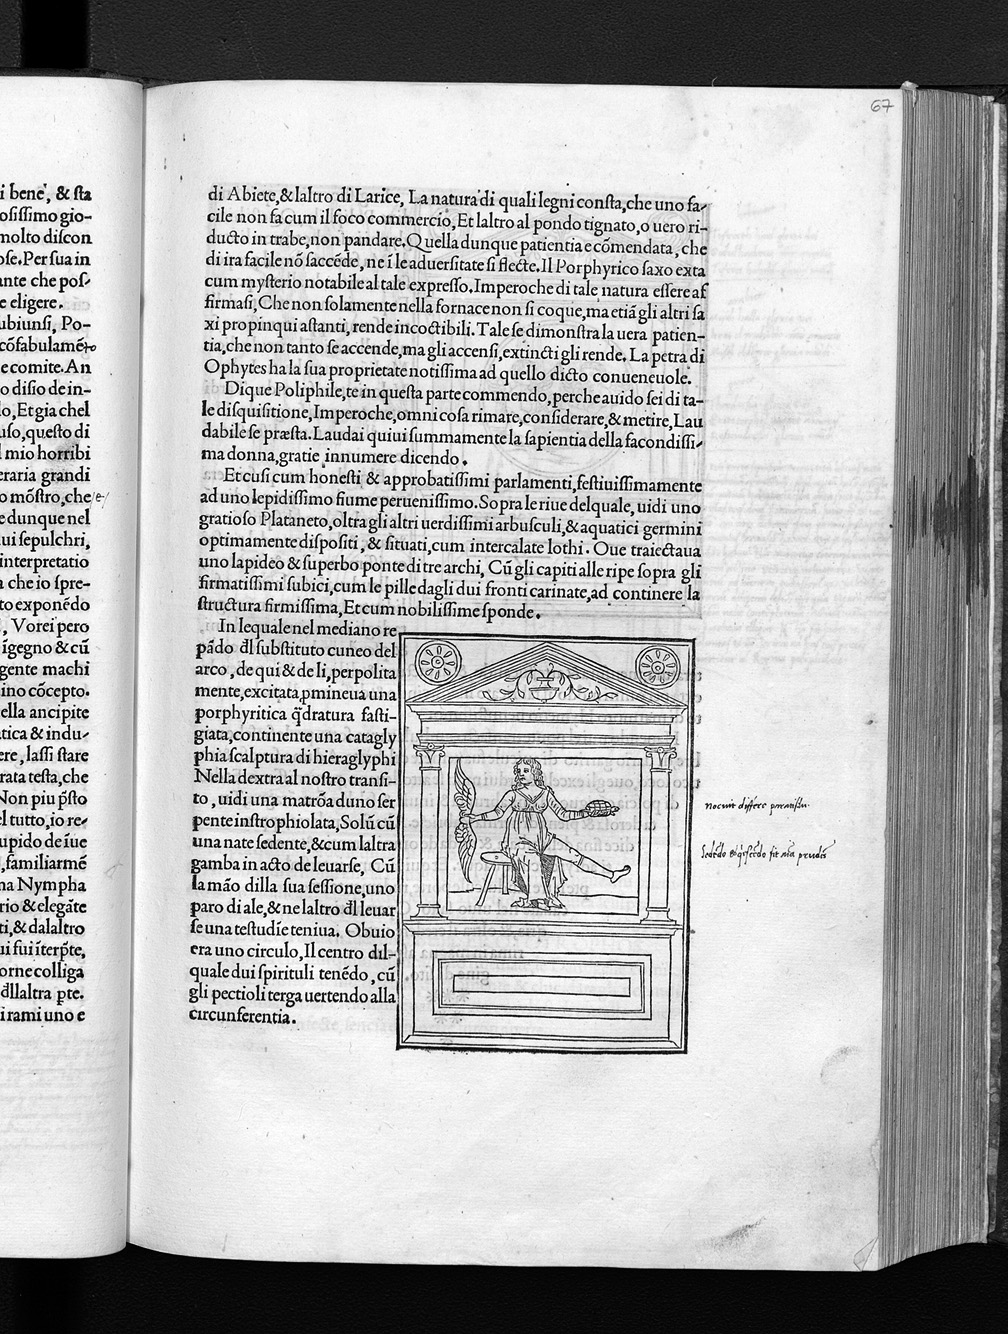 i bene, & ſta
oſiſſimo gio-
molto diſcon
oſe. Per ſua in
ante che poſ-
e eligere.
ubiunſi, Po-
cōfabulamēto
e comite. An
o diſio de in-
lo, Et gia chel
uſo, queſto di
l mio horribi
eraria grandi
o mōſtro, che
e dunque nel
ui ſepulchri,
interpretatio
a che io ſpre-
to exponēdo
, Vorei pero
īgegno & cū
gente machi
ino cōcepto.
ella ancipite
tica & indu-
ere, laſſi ſtare
rata teſta, che
Non piu pſto
el tutto, io re-
upido de īue
, familiarmē
na Nympha
rio & elegāte
ti, & dalaltro
ui fui īterpte,
orne colliga
dllaltra pte.
i rami uno e
67
di Abiete, & laltro di Larice, La natura di quali legni conſta, che uno fa-
cile non fa cum il foco commercio, Et laltro al pondo tignato, o uero ri-
ducto in trabe, non pandare. Quella dunque patientia e cōmendata, che
di ira facile nō ſaccēde, ne ī le aduerſitate ſi flecte. Il Porphyrico ſaxo exta
cum myſterio notabile al tale expreſſo. Imperoche di tale natura eſſere af
firmaſi, Che non ſolamente nella fornace non ſi coque, ma etiā gli altri ſa
xi propinqui aſtanti, rende incoctibili. Tale ſe dimonſtra la uera patien-
tia, che non tanto ſe accende, ma gli accenſi, extincti gli rende. La petra di
Ophytes ha la ſua proprietate notiſſima ad quello dicto conueneuole.
Dique Poliphile, te in queſta parte commendo, perche auido ſei di ta-
le diſquiſitione, Imperoche, omni coſa rimare, conſiderare, & metire, Lau
dabile ſe præſta. Laudai quiui ſummamente la ſapientia della facondiſſi-
ma donna, gratie innumere dicendo.
Et cuſi cum honeſti & approbatiſſimi parlamenti, feſtiuiſſimamente
ad uno lepidiſſimo fiume perueniſſimo. Sopra le riue del quale, uidi uno
gratioſo Plataneto, oltra gli altri uerdiſſimi arbuſculi, & aquatici germini
optimamente diſpoſiti, & ſituati, cum intercalate lothi. Oue traiectaua
uno lapideo & ſuperbo ponte di tre archi, Cū gli capiti alle ripe ſopra gli
firmatiſſimi ſubici, cum le pille dagli dui fronti carinate, ad continere la
ſtructura firmiſſima, Et cum nobiliſſime ſponde.
In lequale nel mediano re
pādo dl ſubſtituto cuneo del
arco, de qui & de li, perpolita
mente, excitata, pmineua una
porphyritica qdratura faſti-
giata, continente una catagly
phia ſcalptura di hieraglyphi
Nella dextra al noſtro tranſi-
to, uidi una matrōa duno ſer
pente inſtrophiolata, Solū cū
una nate ſedente, & cum laltra
gamba in acto de leuarſe, Cū
la māo dilla ſua ſeſſione, uno
paro di ale, & ne laltro dl leuar
ſe una teſtudie teniua. Obuio
era uno circulo, Il centro dil-
quale dui ſpirituli tenēdo, cū
gli pectioli terga uertendo alla
circunferentia.
nocuit differe paratis